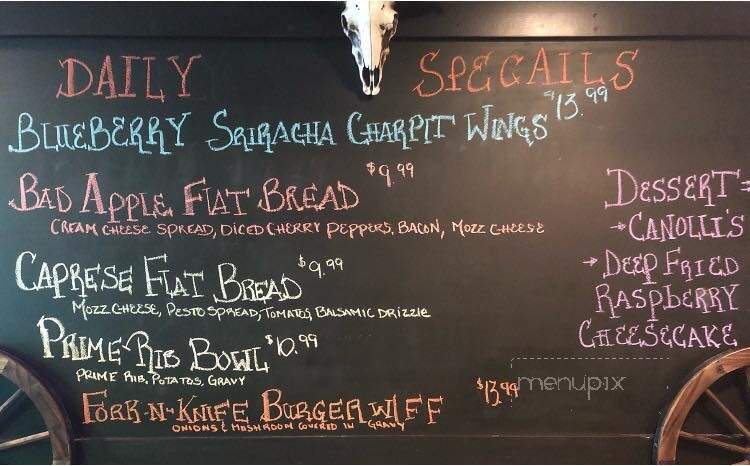 DAILY SPECAILS
BLUEBERRY SRIRACHA CHARPIT WINGS $13.99
BAD APPLE FLAT BREAD $9.99
CREAM CHEESE SPREAD, DICED CHERRY PEPPERS, BACON, MOZZ CHEESE
CAPRESE FLAT BREAD $9.99
MOZZ CHEESE, PESTO SPREAD, TOMATOS, BALSAMIC DRIZZLE
PRIME-RIB BOWL $10.99
PRIME RIB, POTATOS, GRAVY
FORK-N-KNIFE BURGER W/FF $13.99
ONIONS & MUSHROOM COVERED IN GRAVY
DESSERT=
→CANOLLI'S
→DEEP FRIED
RASPBERRY
CHEESECAKE
menupix